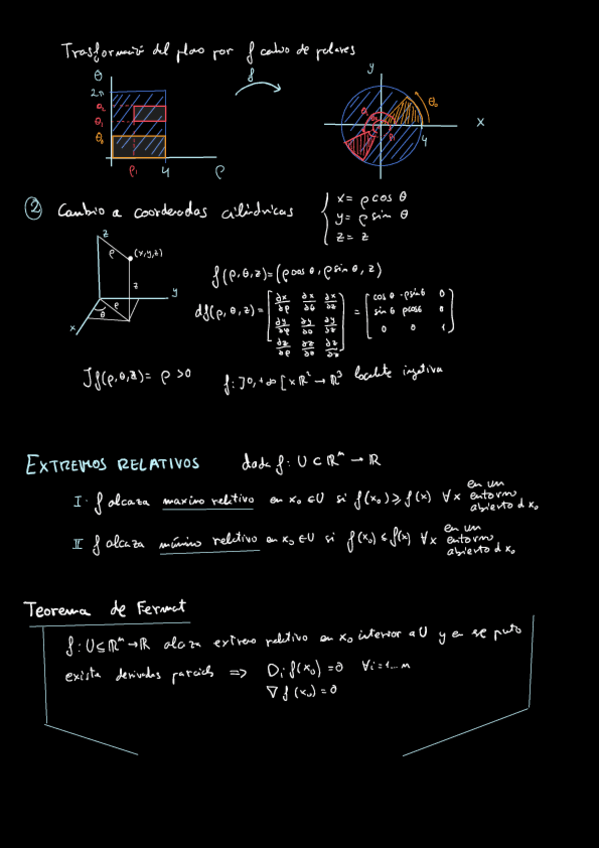 Trasformació del plano por f cambio de polares
θ
2π
θ₂
θ₁
θ₀
ρ₁ 4 ρ
f
y
θ₀
x
4
② Cambio a coordenadas cilíndricas
x = ρ cos θ
y = ρ sin θ
z = z
z
ρ
(x,y,z)
z
y
ρ
θ
x
f(ρ,θ,z) = (ρ cos θ, ρ sin θ, z)
df(ρ,θ,z) = [∂x/∂ρ ∂x/∂θ ∂x/∂z; ∂y/∂ρ ∂y/∂θ ∂y/∂z; ∂z/∂ρ ∂z/∂θ ∂z/∂z] = [cos θ -ρ sin θ 0; sin θ ρ cos θ 0; 0 0 1]
Jf(ρ,θ,z) = ρ > 0 f: ]0,+∞[ × ℝ² → ℝ³ localmte inyectiva
EXTREMOS RELATIVOS dada f: U ⊂ ℝⁿ → ℝ
I · f alcaza maximo reletivo en x₀ ∈ U si f(x₀) ⩾ f(x) ∀x en un entorno abierto d x₀
II f alcaza mínimo reletivo en x₀ ∈ U si f(x₀) ≤ f(x) ∀x en un entorno abierto d x₀
Teorema de Fermat
f: U ⊆ ℝⁿ → ℝ alcaza extremo relativo en x₀ interior a U y en se puto
existe derivadas parciales ⇒ Dᵢ f(x₀) = 0 ∀i = 1...n
∇f(x₀) = 0